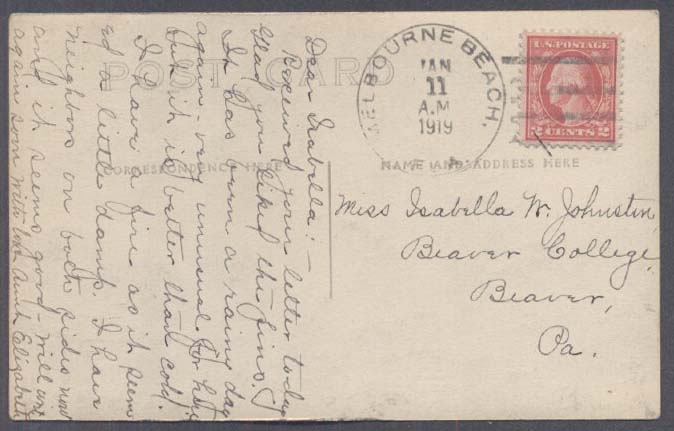 POST CARD
MELBOURNE BEACH,
JAN
11
A.M
1919
U.S. POSTAGE
2 CENTS 2
CORRESPONDENCE HERE
NAME AND ADDRESS HERE
Dear Isabella:—
Received your letter to-day
Glad you liked the
It has been a rainy day
again - very unusual for here
but it is better than cold.
I have a fire as it seem
ed a little damp. I have
neighbors on both sides now
and it seems good - will write
again soon with love Aunt Elizabeth
Miss Isabella W. Johnston,
Beaver College,
Beaver,
Pa.